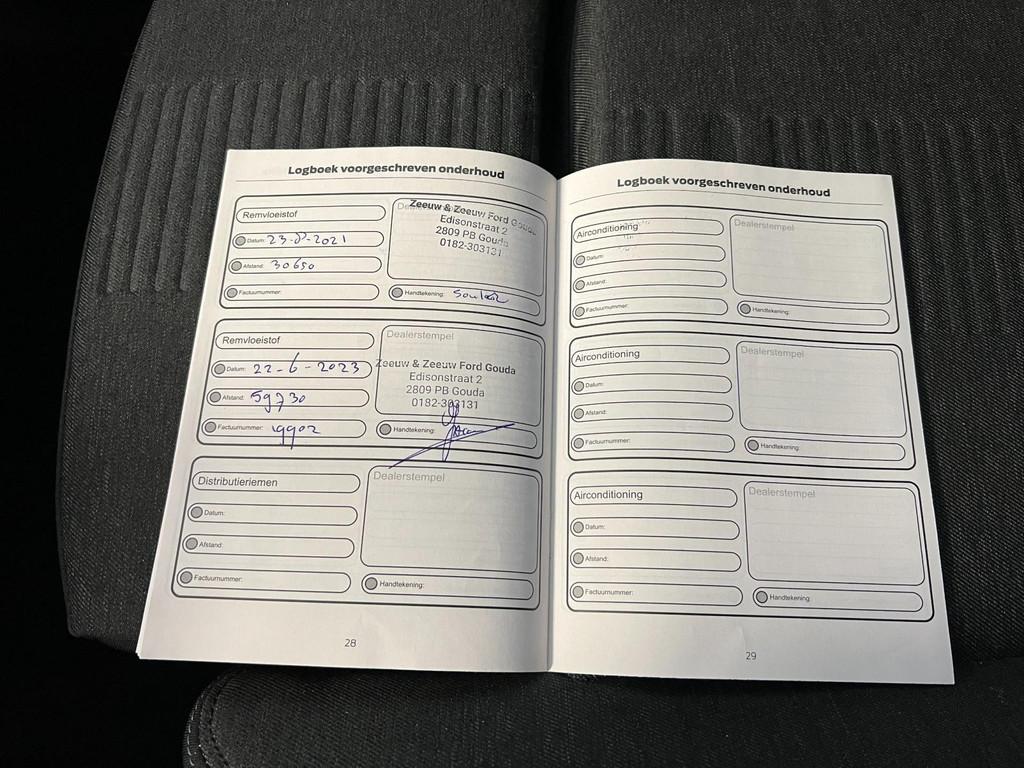 Logboek voorgeschreven onderhoud
Remvloeistof
Datum: 23-8-2021
Afstand: 30650
Factuurnummer:
Zeeuw & Zeeuw Ford Gouda
Edisonstraat 2
2809 PB Gouda
0182-303131
Handtekening:
Remvloeistof
Datum: 22-6-2023
Afstand: 59730
Factuurnummer: 19902
Dealerstempel
Zeeuw & Zeeuw Ford Gouda
Edisonstraat 2
2809 PB Gouda
0182-303131
Handtekening:
Distributieriemen
Datum:
Afstand:
Factuurnummer:
Dealerstempel
Handtekening:
28
Logboek voorgeschreven onderhoud
Airconditioning
Datum:
Afstand:
Factuurnummer:
Dealerstempel
Handtekening:
Airconditioning
Datum:
Afstand:
Factuurnummer:
Dealerstempel
Handtekening:
Airconditioning
Datum:
Afstand:
Factuurnummer:
Dealerstempel
Handtekening:
29